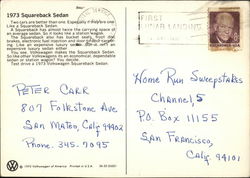 1973 Squareback Sedan
Two cars are better than one. Especially if they're one
Like a Squareback Sedan.
A Squareback has almost twice the carrying space of
an average sedan. So it looks like a station wagon.
The Squareback also has bucket seats, front disc
brakes, electronic fuel injection and door-to-door carpet-
ing. Like an expensive luxury sedan. So it isn't an
expensive luxury sedan either.
You see, Volkswagen makes the Squareback Sedan.
So like other Volkswagens its an economical, dependable
sedan or station wagon? You decide.
Test drive a 1973 Volkswagen Squareback Sedan.
FIRST
LUNAR LANDING
Peter Carr
807 Folkstone Ave
San Mateo, Calif 94402
Phone: 345-7095
Home Run Sweepstakes
Channel 5
P.O. Box 11155
San Francisco,
Calif 94101
© 1972 Volkswagen of America
Printed in U.S.A.